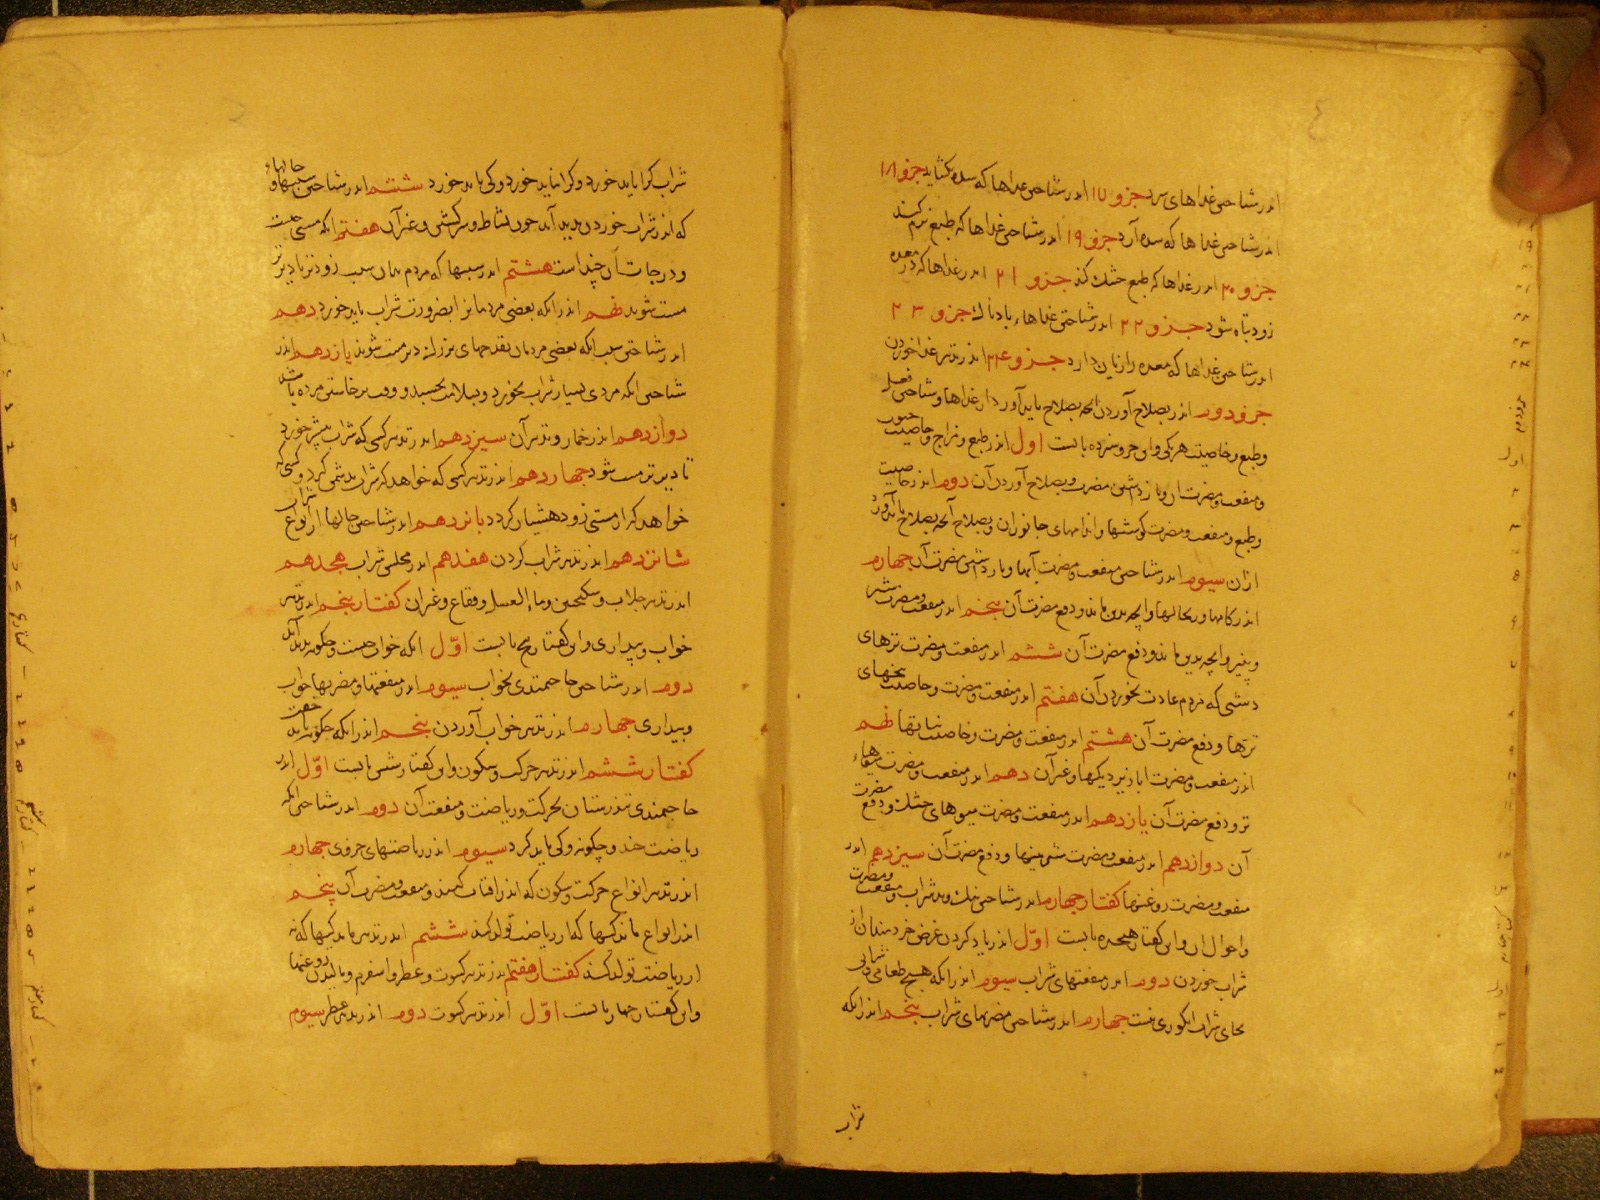 اندر شناختن غذاهای سرد جزو ۱۷ اندر شناختن غذاها که سده بکشاید جزو ۱۸
اندر شناختن غذاها که سده آرد جزو ۱۹ اندر شناختن غذاها که طبع نرم کند
جزو ۲۰ اندر غذاها که طبع خشك کند جزو ۲۱ اندر غذاها که در معده
زود تباه شود جزو ۲۲ اندر شناختن غذاهاء بادناك جزو ۲۳
اندر شناختن غذاها که معده را زیان دارد جزو ۲۴ اندر تدبیر غذا خوردن
جزو دوم اندر بصلاح آوردن آنچه بصلاح باید آورد از غذاها و شناختن فعل
و طبع و خاصیت هر یکی و این جزو سیزده بابست اول اندر طبع و مزاج و خاصیت حبوب
و منفعت و مضرت آن و باز داشتن مضرت و بصلاح آوردن آن دوم اندر خاصیت
و طبع و منفعت و مضرت گوشتها و اندامهای جانوران و بصلاح آنچه بصلاح باید آورد
ازان سیوم اندر شناختن منفعت و مضرت آبها و بازداشتن مضرت آن چهارم
اندر کامها و ریحالها و آنچه بدین ماند و دفع مضرت آن پنجم اندر منفعت و مضرت شیر
و پنیر و آنچه بدین ماند و دفع مضرت آن ششم اندر منفعت و مضرت ترهای
دشتی که مردم عادت بخوردن آن هفتم اندر منفعت و مضرت و خاصیت بیخهای
ترها و دفع مضرت آن هشتم اندر منفعت و مضرت و خاصیت نباتها نهم
اندر منفعت و مضرت ابازیر دیکها و غیر آن دهم اندر منفعت و مضرت میوهاء
تر و دفع مضرت آن یازدهم اندر منفعت و مضرت میوهای خشك و دفع مضرت
آن دوازدهم اندر منفعت و مضرت شیرینیها و دفع مضرت آن سیزدهم اندر
منفعت و مضرت روغنها کفتار چهارم اندر شناختن نیك و بد شراب و منفعت و مضرت
و احوال آن و این کفتار هیجده بابست اول اندر یاد کردن غرض خردمندان از
شراب خوردن دوم اندر منفعتهای شراب سیوم اندر انکه هیچ طعامی و شرابی
بجای شراب انکوری نیست چهارم اندر شناختن مضرتهای شراب پنجم اندر انکه
شراب
شراب کرا باید خورد و کرا نباید خورد و کی باید خورد ششم اندر شناختن سببها و حالهاء
که اندر شراب خوردن پدید آید چون نشاط و سرکشی و غیر آن هفتم انکه مستی چیست
و درجات آن چند است هشتم اندر سببها که مردم بدان سبب زودتر یا دیرتر
مست شوند نهم اندر انکه بعضی مردمانرا بضرورت شراب باید خورد دهم
اندر شناختن سبب انکه بعضی مردمان بقدحهای بزرك دیر مست شوند یازدهم اندر
شناختن انکه مردی بسیار شراب بخورد و بسلامت بخسبد و وقت برخاستن مرده باشد
دوازدهم اندر خمار و تدبیر آن سیزدهم اندر تدبیر کسی که شراب بیشتر خورد
تا دیرتر مست شود چهاردهم اندر تدبیر کسی که خواهد کز شراب بدشمنی کردد و کسی که
خواهد کز مستی زود هشیار کردد پانزدهم اندر شناختن حالها از انواع شراب
شانزدهم اندر تدبیر شراب کردن هفدهم اندر مجلس شراب هجدهم
اندر تدبیر جلاب و سکنجبین و ماء العسل و فقاع و غیر آن کفتار پنجم اندر تدبیر
خواب و بیداری و این کفتار پنج بابست اوّل انکه خواب چیست و چکونه پدید آید
دوم اندر شناختن حاجتمندی بخواب سیوم اندر منفعتها و مضرتهاء خواب
و بیداری چهارم اندر تدبیر خواب آوردن پنجم اندر انکه چکونه باید خفت
کفتار ششم اندر تدبیر حرکت و سکون و این کفتار شش بابست اوّل اندر
حاجتمندی تندرستان بحرکت و ریاضت و منفعت آن دوم اندر شناختن انکه
ریاضت چند و چکونه و کی باید کرد سیوم اندر ریاضتهای جزوی چهارم
اندر تدبیر انواع حرکت و سکون که اندر افتاب کنند و منفعت و مضرت آن پنجم
اندر انواع ماندکیها که از ریاضت تولد کند ششم اندر تدبیر ماندکیها که نه
از ریاضت تولد کند کفتار هفتم اندر تدبیر کسوت و عطر و اسفرم و مالیدن روغنها
و این کفتار چهار بابست اوّل اندر تدبیر کسوت دوم اندر تدبیر عطر سیوم